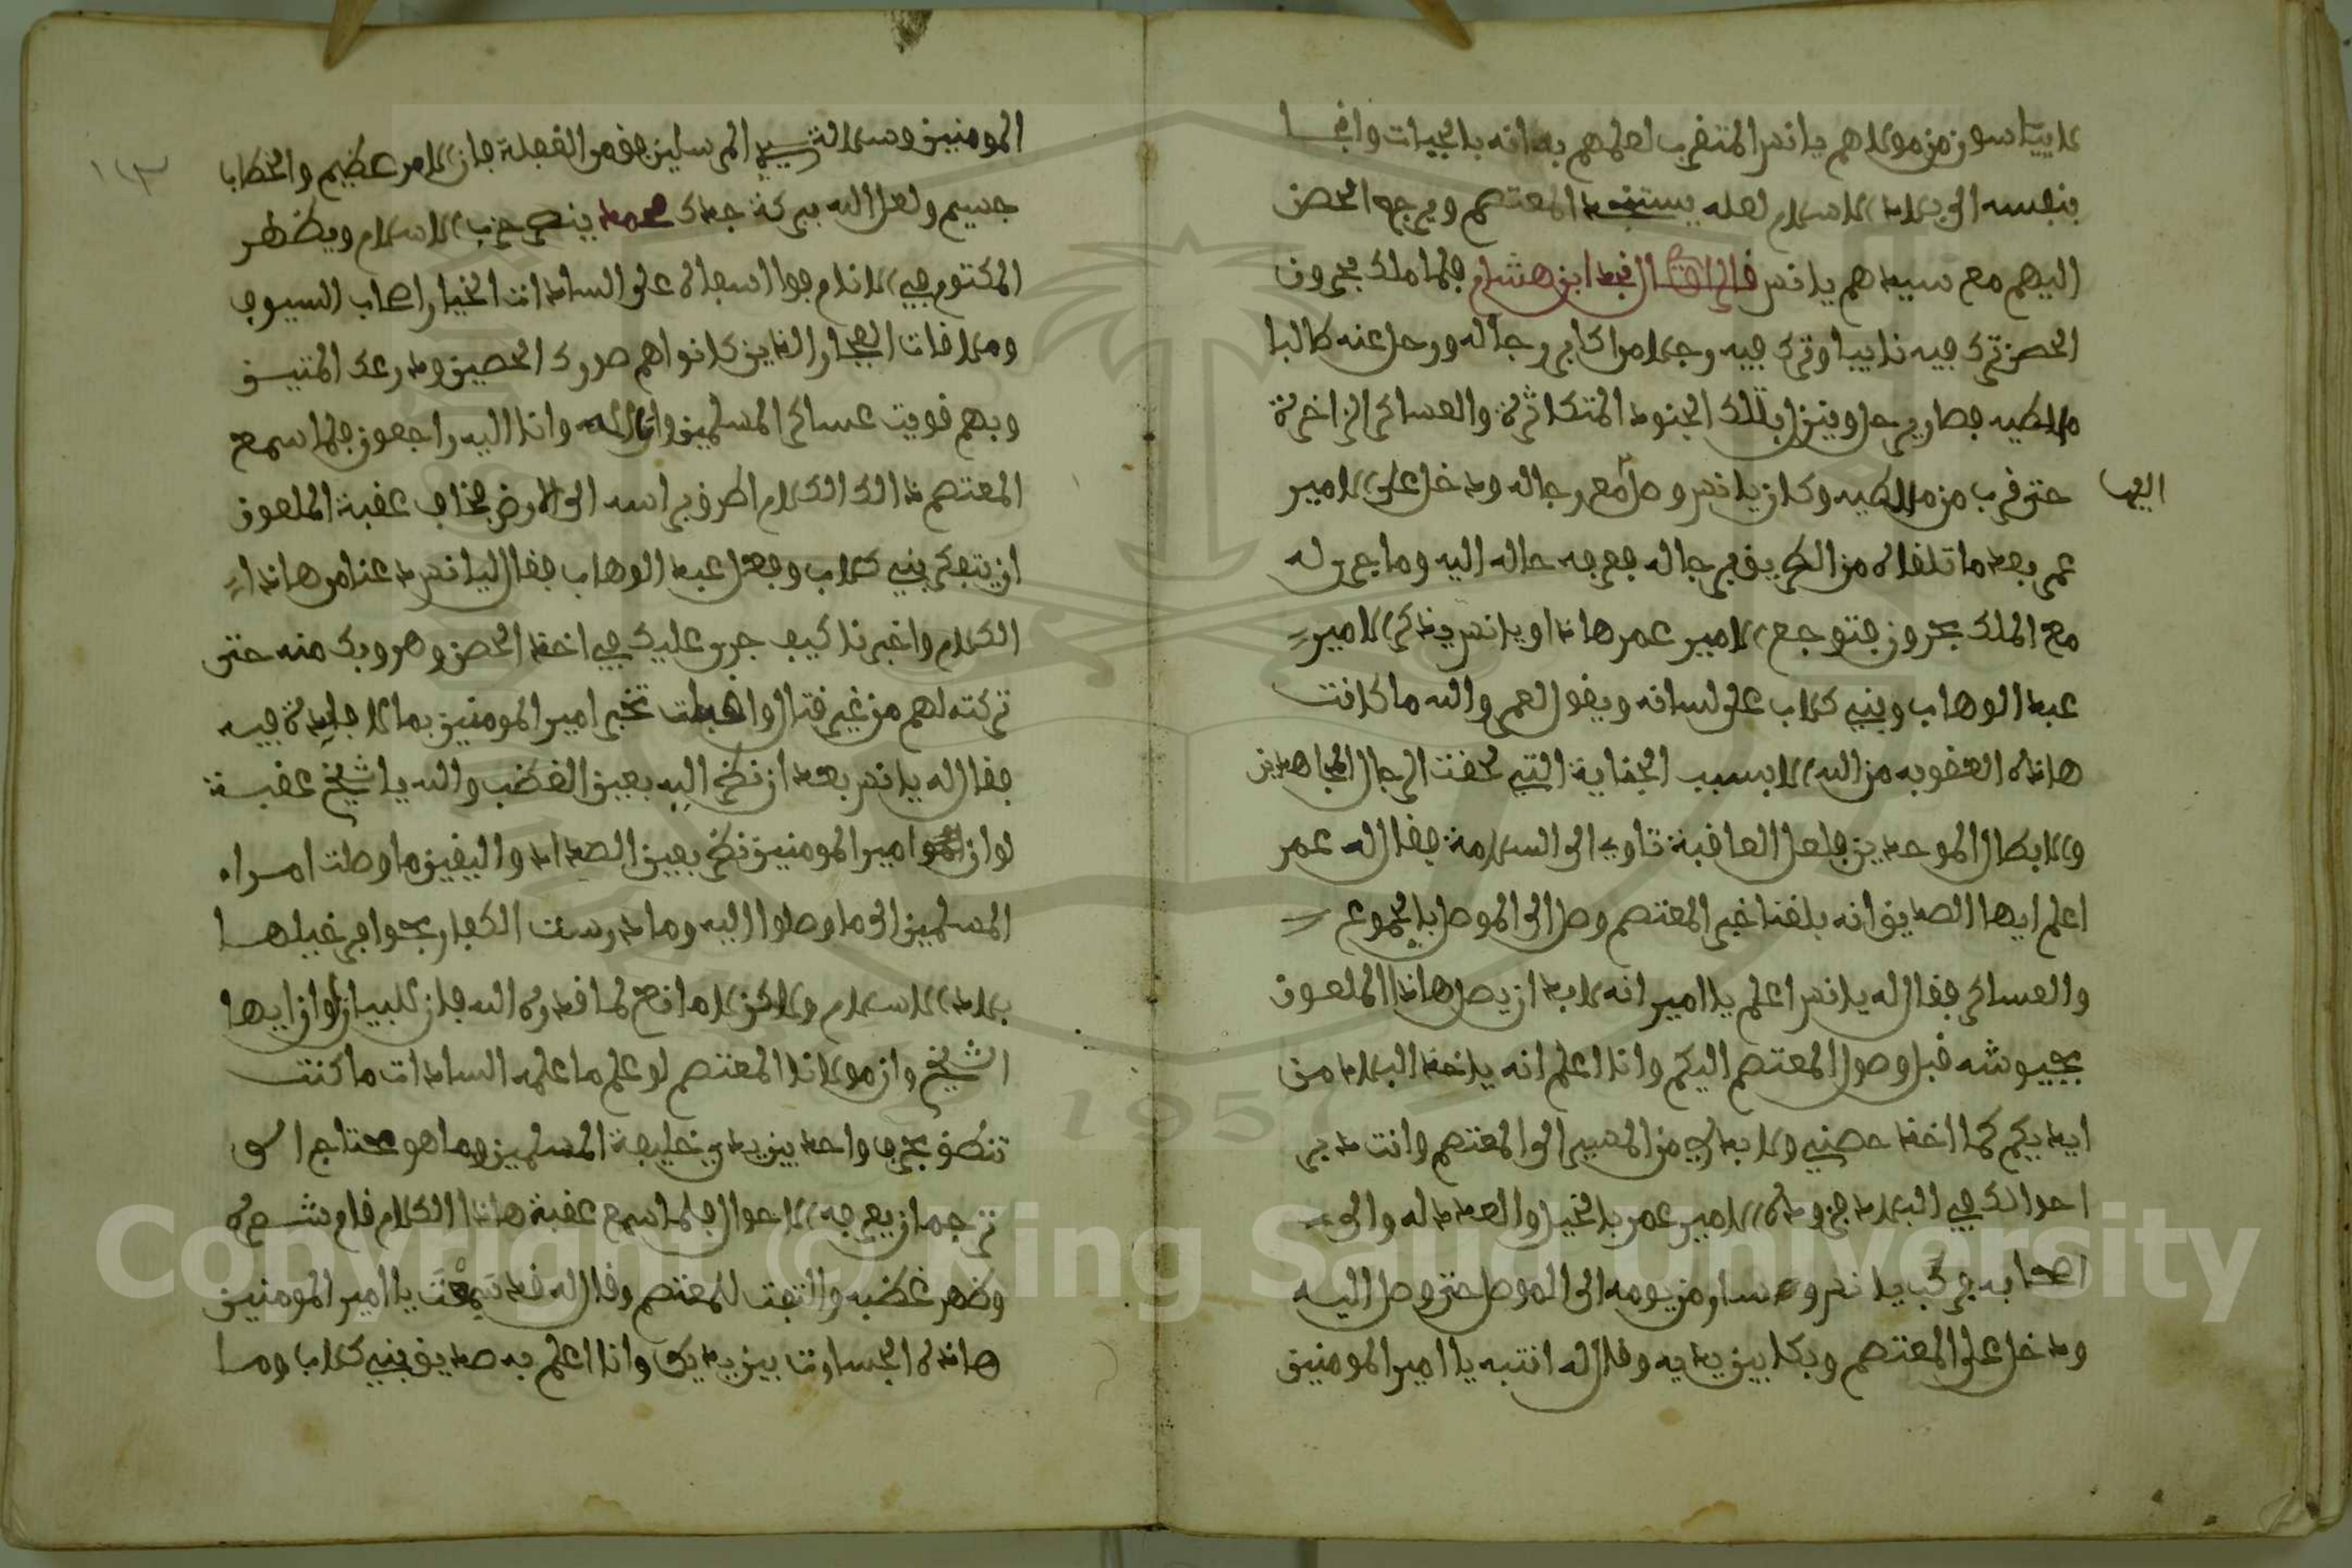 لا يياسون من مولاهم يانس المتقرب لعلمهم به انه بالحيات وانجا
بنفسه الى بلاد الاسلام لعله يستنجد المعتصم ويرجع الحصن
اليهم مع سيدهم يانس قال نجد ابن هشام فلما ملك بحرون
الحصن ترك فيه نايبا وترك فيه رجلا من اكابر رجاله ورحل عنه طالبا
ملطيه فصار يرحل وينزل بتلك الجنود المتكاثرة والعساكر الزاخرة
حتى قرب من ملطيه وكان يانس وصل مع رجاله ودخل على الامير
اليها
عمر بعد ما تلقاه من الطريق برجاله فعرفه حاله اليه وما جرى له
مع الملك بحرون فتوجع الامير عمر هاذا ويانس يذكر الامير
عبد الوهاب وبني كلاب على لسانه ويقول عمر والله ما كانت
هاذه العقوبه من الله الا بسبب الجناية التي لحقت الرجال المجاهدين
والابطال الموحدين فلعل العاقبة تاوي الى السلامة فقال له عمر
اعلم ايها الصديق انه بلغنا خبر المعتصم وصل الى الموصل بالجموع
والعساكر فقال له يانس اعلم يا امير انه لا بد ان يصل هاذا الملعون
بجيوشه قبل وصول المعتصم اليكم وانا اعلم انه ياخذ البلاد من
ايديكم كما اخذ حصني ولا بد لي من المسير الى المعتصم وانت دبر
احوالك في البلاد فزوده الامير عمر بالخيل والعدد له والى
اصحابه فركب يانس وسار من يومه الى الموصل حتى وصل اليه
ودخل على المعتصم وبكا بين يديه وقال له انتبه يا امير المومنين
١٣
المومنين وسلالة سيد المرسلين من الغفلة فان الامر عظيم والخطاب
جسيم ولعل الله ببركة جدك محمد ينصر حزب الاسلام ويظهر
المكتوم في الانام فوا اسفاه على السادات الخيار اصحاب السيوف
وملاقات الفجار الذين كانوا هم صدرك الحصين ودرعك المتين
وبهم قويت عساكر المسلمين وانا لله وانا اليه راجعون فلما سمع
المعتصم ذالك الكلام اطرق براسه الى الارض فخاف عقبة الملعون
ان يتفكر بني كلاب وفعل عبد الوهاب فقال ليانس دعنا من هاذا
الكلام واخبرنا كيف جرى عليك في اخذ الحصن وهروبك منه حتى
تركته لهم من غير قتال واقبلت تخبر امير المومنين بما لا فايدة فيه
فقال له يانس بعد ان نظر اليه بعين الغضب والله يا شيخ عقبة
لو ان امير المومنين نظر بعين الصداد واليقين ما وصلت امراء
المسلمين الى ما وصلوا اليه وما درست الكفار بحوافر خيلها
بلاد الاسلام ولاكن لا مانع لما قدره الله فان للبيان اوان ايها
الشيخ وان مولانا المعتصم لو علم ما علمه السادات ما كنت
تنطق بحرف واحد بين يدي خليفة المسلمين وما هو محتاج الى
ترجمان يعرفه الاحوال فلما سمع عقبة هاذا الكلام قام شعره
وظهر غضبه والتفت للمعتصم وقال له قد سَمِعْتَ يا امير المومنين
هاذه الجسارة بين يديك وانا اعلم به صديق بني كلاب وما